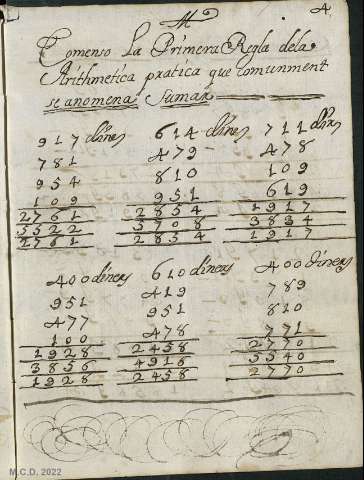 4
Comenso La Primera Regla dela
Arithmetica pratica que comunment
se anomena Sumar
917 dines 614 dines 711 dis
781 479 478
954 810 109
109 951 619
2761 2854 1917
5522 5708 3834
2761 2854 1917
400 diners 610 diners 400 diners
951 419 789
477 951 810
100 478 771
1928 2458 2770
3856 4916 5540
1928 2458 2770
M.C.D. 2022